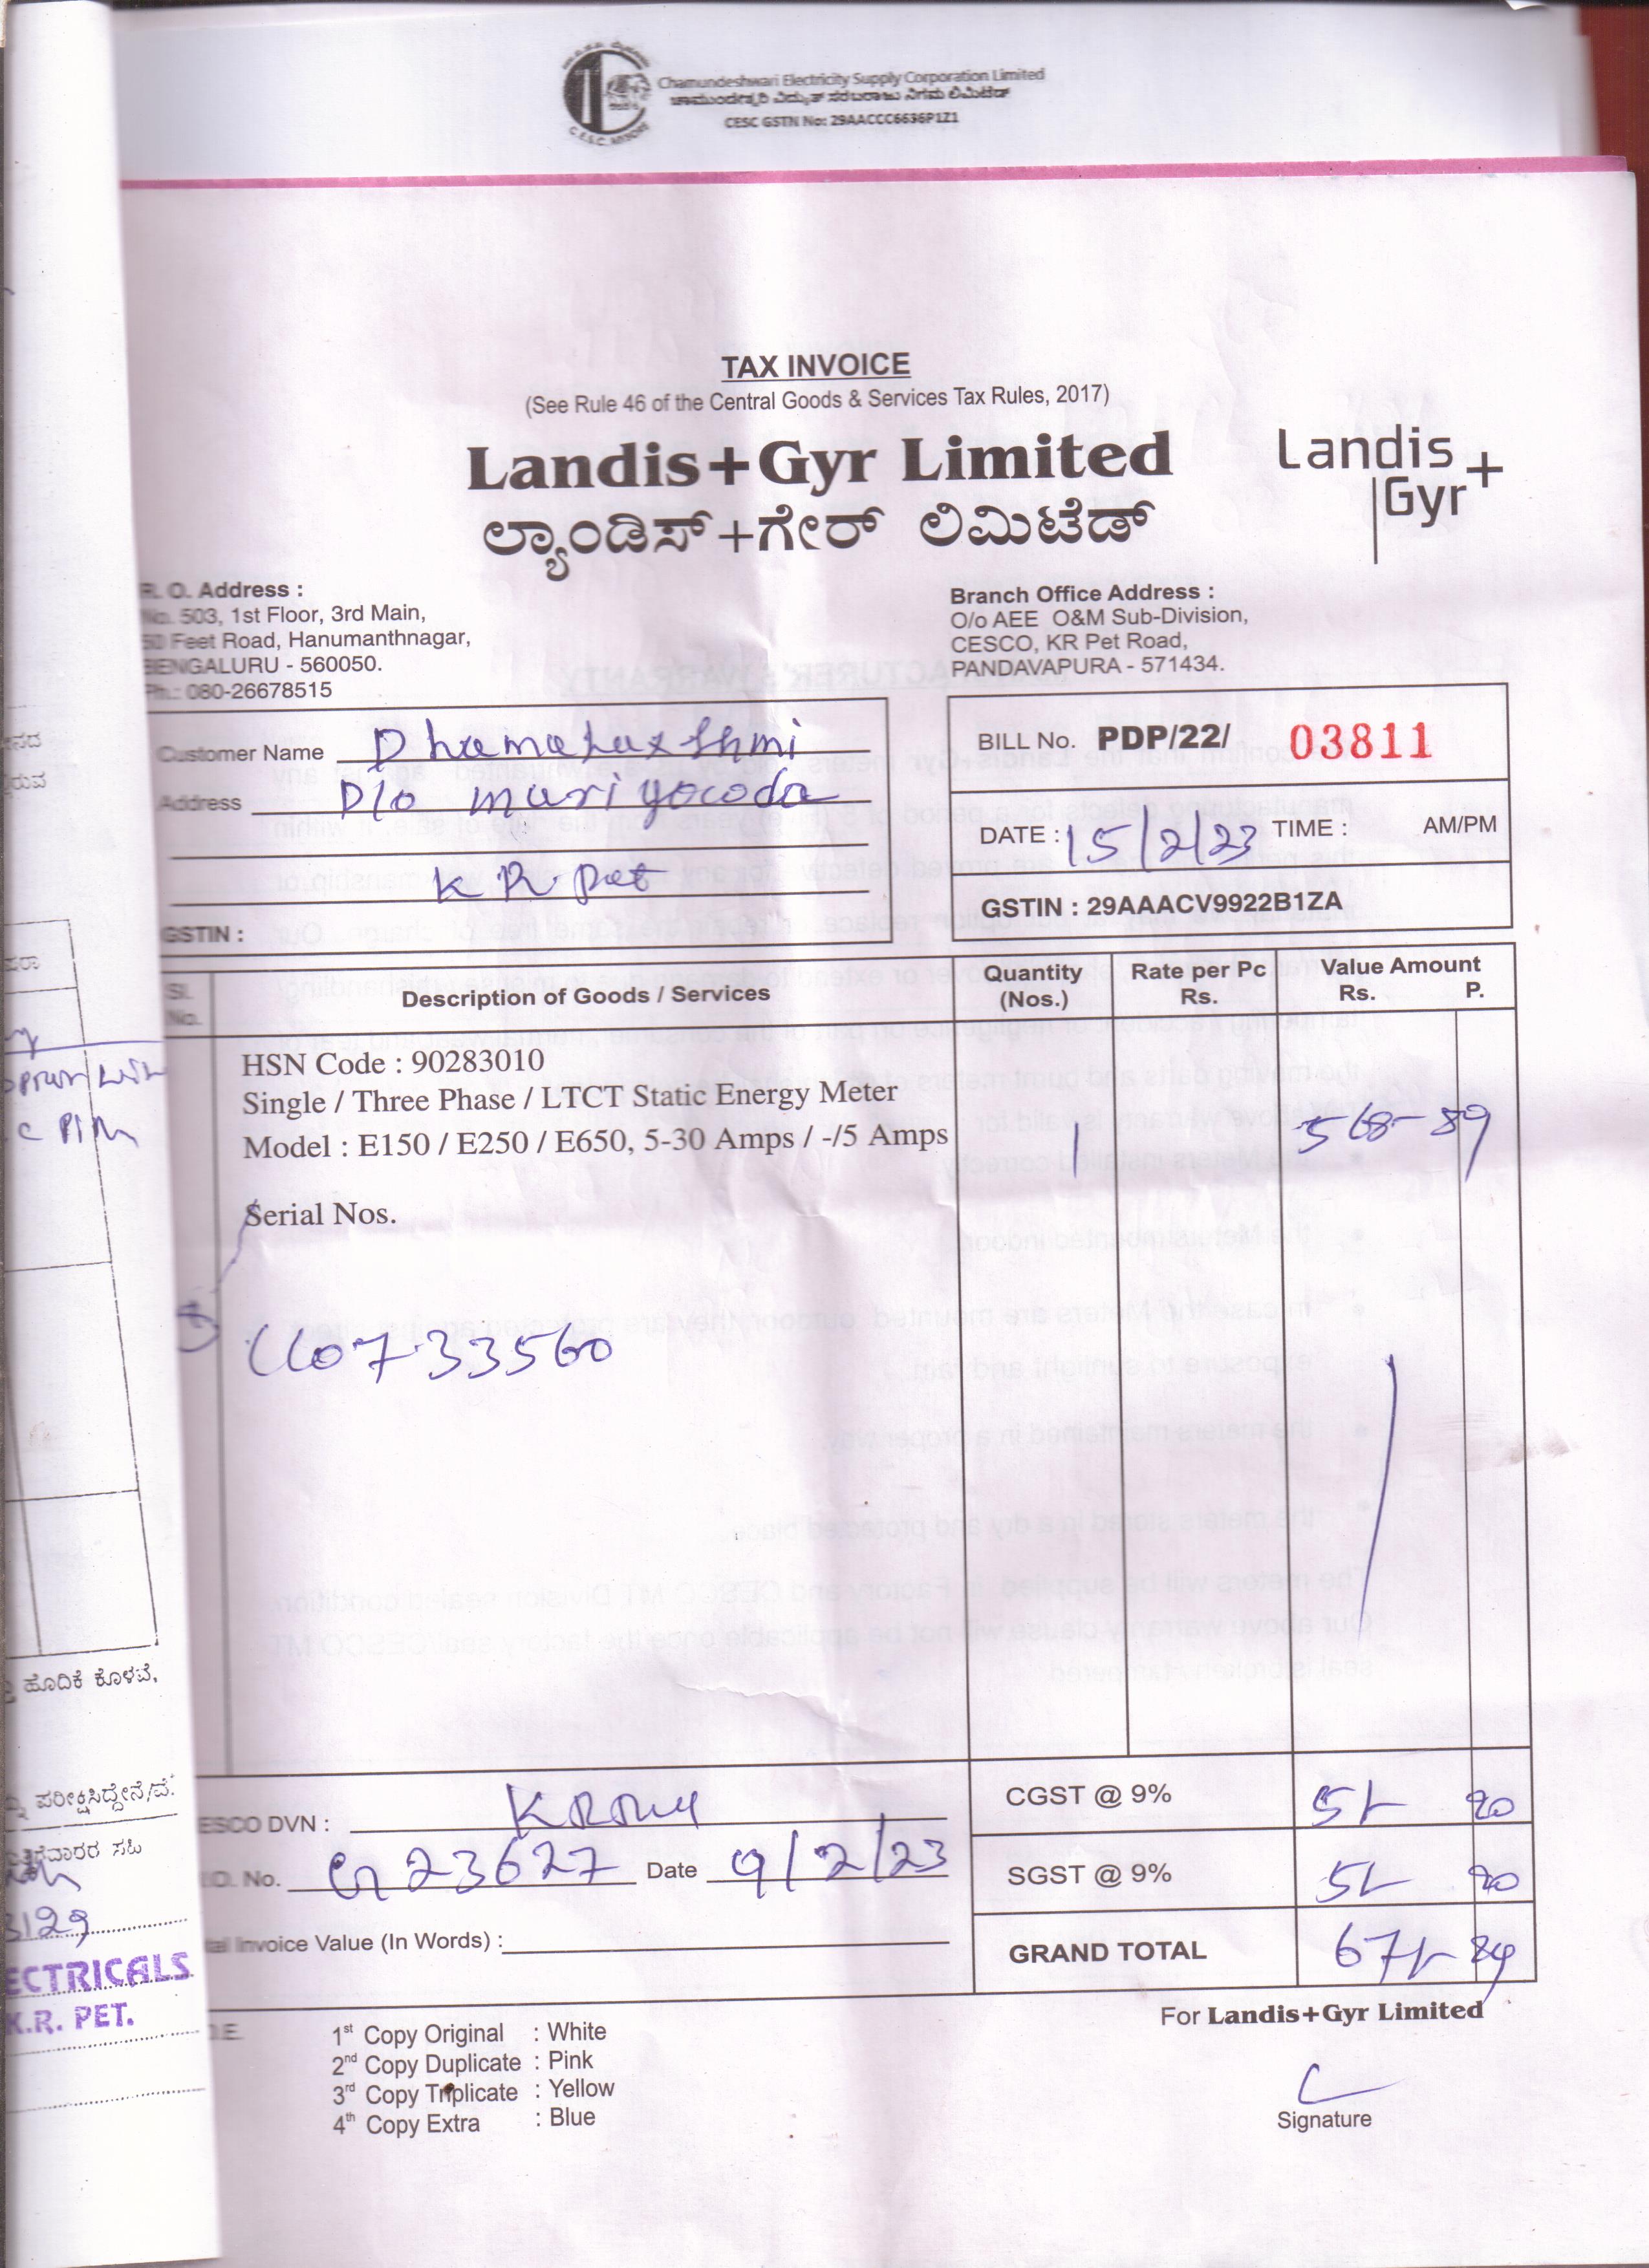 Chamundeshwari Electricity Supply Corporation Limited
ಚಾಮುಂಡೇಶ್ವರಿ ವಿದ್ಯುತ್ ಸರಬರಾಜು ನಿಗಮ ಲಿಮಿಟೆಡ್
CESC GSTN No: 29AACCC6636P1Z1
C.E.S.C. MYSORE
TAX INVOICE
(See Rule 46 of the Central Goods & Services Tax Rules, 2017)
Landis+Gyr Limited
ಲ್ಯಾಂಡಿಸ್+ಗೇರ್ ಲಿಮಿಟೆಡ್
Landis
Gyr+
R. O. Address :
No. 503, 1st Floor, 3rd Main,
50 Feet Road, Hanumanthnagar,
BENGALURU - 560050.
Ph.: 080-26678515
Branch Office Address :
O/o AEE O&M Sub-Division,
CESCO, KR Pet Road,
PANDAVAPURA - 571434.
Customer Name
Address D/o
K R pet
GSTIN :
BILL No. PDP/22/ 03811
DATE : 15/2/23 TIME : AM/PM
GSTIN : 29AAACV9922B1ZA
Sl. No. Description of Goods / Services Quantity (Nos.) Rate per Pc Rs. Value Amount Rs. P.
HSN Code : 90283010
Single / Three Phase / LTCT Static Energy Meter
Model : E150 / E250 / E650, 5-30 Amps / -/5 Amps 1 568-89
Serial Nos.
733560
ESCO DVN :
O. No. 23627 Date 9/2/23
tal Invoice Value (In Words) :
CGST @ 9% 20
SGST @ 9% 20
GRAND TOTAL
For Landis+Gyr Limited
Signature
1st Copy Original : White
2nd Copy Duplicate : Pink
3rd Copy Triplicate : Yellow
4th Copy Extra : Blue
ಹೊದಿಕೆ ಕೊಳವೆ,
ಪರೀಕ್ಷಿಸಿದ್ದೇನೆ/ವೆ.
ECTRICALS
K.R. PET.